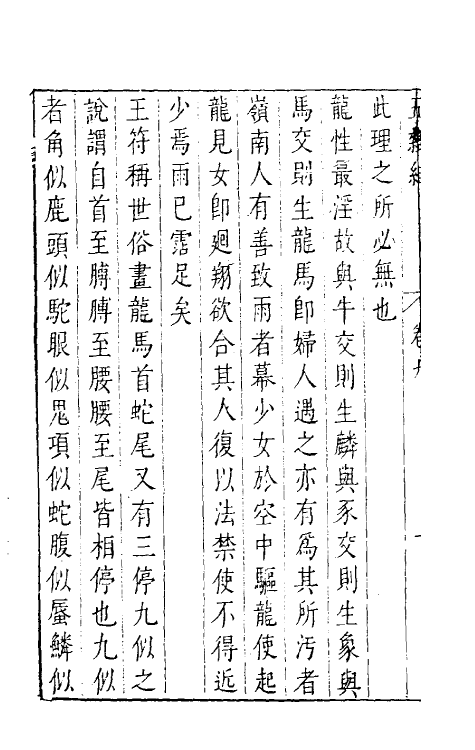 五雜組 卷
此理之所必無也
龍性最淫故與牛交則生麟與豕交則生象與
馬交則生龍馬即婦人遇之亦有爲其所汚者
嶺南人有善致雨者幕少女於空中驅龍使起
龍見女即廻翔欲合其人復以法禁使不得近
少焉雨已霑足矣
王符稱世俗畫龍馬首蛇尾又有三停九似之
說謂自首至膊膊至腰腰至尾皆相停也九似
者角似鹿頭似駝眼似鬼項似蛇腹似蜃鱗似